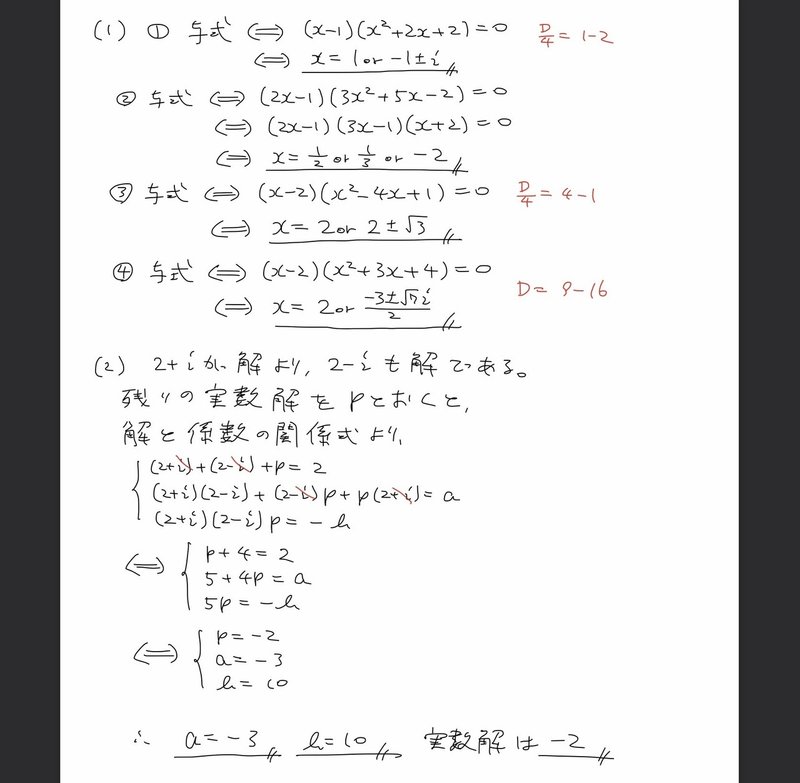 (1) ① 与式 ⇔ (x-1)(x²+2x+2)=0 D/4=1-2
⇔ x=1 or -1±i
② 与式 ⇔ (2x-1)(3x²+5x-2)=0
⇔ (2x-1)(3x-1)(x+2)=0
⇔ x=1/2 or 1/3 or -2
③ 与式 ⇔ (x-2)(x²-4x+1)=0 D/4=4-1
⇔ x=2 or 2±√3
④ 与式 ⇔ (x-2)(x²+3x+4)=0 D=9-16
⇔ x=2 or (-3±√7i)/2
(2) 2+iが解より, 2-iも解である。
残りの実数解をpとおくと,
解と係数の関係式より,
(2+i)+(2-i)+p=2
(2+i)(2-i)+(2-i)p+p(2+i)=a
(2+i)(2-i)p=-b
⇔ p+4=2
5+4p=a
5p=-b
⇔ p=-2
a=-3
b=10
∴ a=-3 b=10 実数解は -2